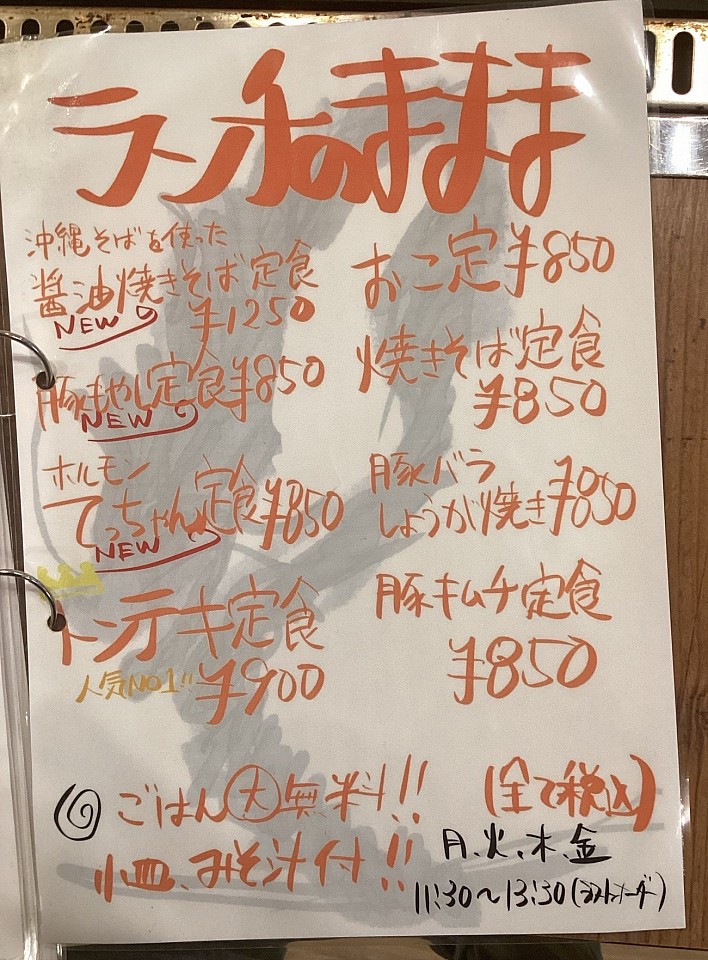 ランチのままま
沖縄そばを使った
醤油焼きそば定食
NEW ¥1250
豚もやし定食¥850
NEW
ホルモン
てっちゃん定食¥850
NEW
トンテキ定食
人気NO1!! ¥900
おこ定¥850
焼きそば定食
¥850
豚バラ
しょうが焼き¥850
豚キムチ定食
¥850
ごはん大無料!!
小皿、みそ汁付!!
(全て税込)
月、火、木、金
11:30〜13:30(ラストオーダー)